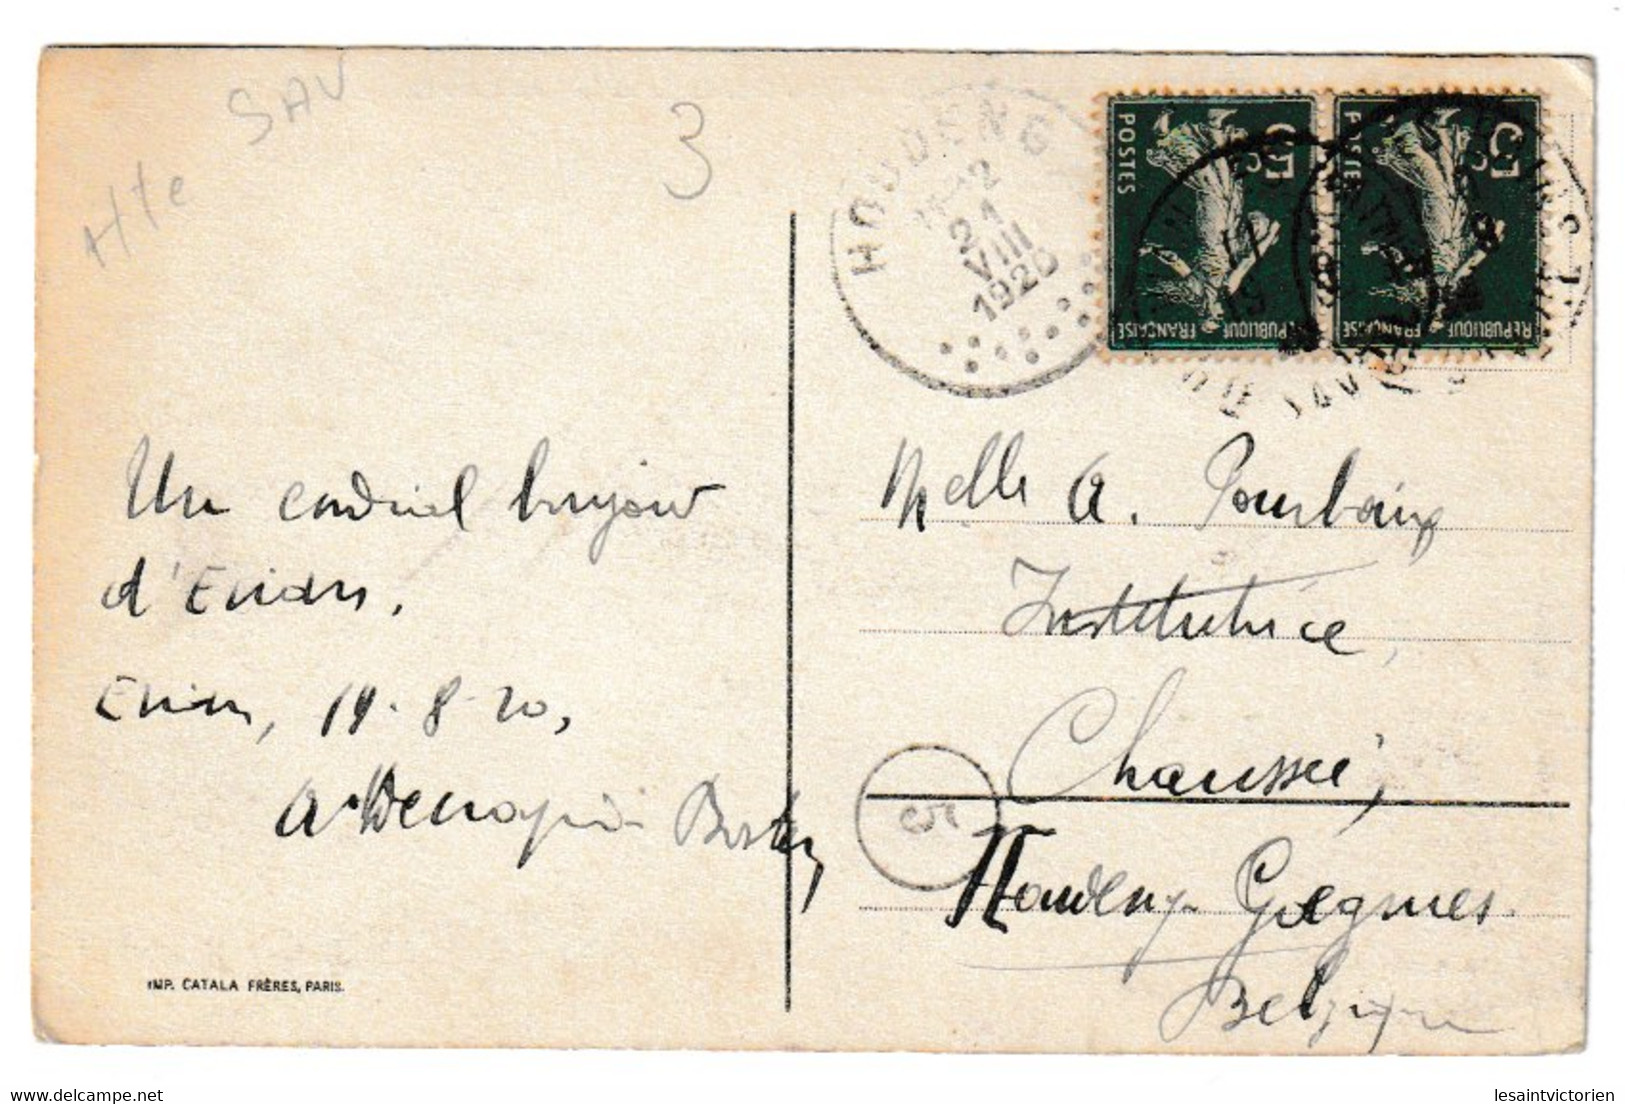 Hte SAV
3
HOUDENG
21
VIII
1920
POSTES
5c
RÉPUBLIQUE FRANÇAISE
POSTES
5c
RÉPUBLIQUE FRANÇAISE
Un cordial bonjour
d'Evian.
Evian, 19-8-20,
Melle A. Pourbaix
Institutrice,
Chaussée,
Houdeng-Goegnies
Belgique
5
IMP. CATALA FRÈRES, PARIS.
delcampe.net
lesaintvictorien